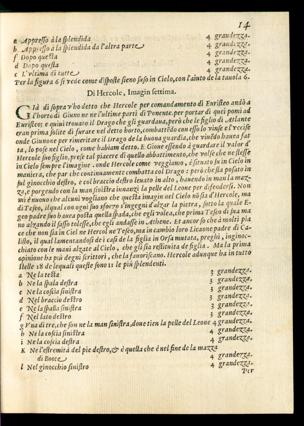 14
a Appresso à la splendida 4 grandezza.
b Appresso à la splendida da l'altra parte 4 grandezza.
f Dopo questa 4 grandezza.
d Dopo questa 4 grandezza.
e L'ultima di tutte 4 grandezza.
Per la figura 6 si vede come disposte sieno suso in Cielo, con l'aiuto de la tauola 6.
Di Hercole, Imagin settima.
GIà di sopra v'ho detto che Hercole per comandamento di Euristeo andò à
l'horto di Giunone ne l'ultima parti di Ponente, per portar di quei pomi ad
Euristeo: e quiui trouato il Drago che gli guardaua, però che le figlie di Atlante
eran prima solite di furare nel detto horto, combattèdo con esso lo vinse. e l'uccise
onde Giunone per rimeritare il Drago de la buona guardia, che vinèdo hauea fat
ta, lo pose nel Cielo, come habbiam detto. E Gioue essendo à guardare il valor d'
Hercole suo figlio, prese tal piacere di quello abbattimento, che volse che ne stesse
in Cielo sempre l'imagine. onde Hercole come veggiamo, è situato suso in Cielo in
maniera, che par che continuamente combatta col Drago: però che sta posato in
sul ginocchio destro, e col braccio destro leuato in alto, hauendo in man la maz
za, e porgendo con la man sinistra innanzi la pelle del Leone per difendersi. Non
mi è nuouo che alcuni vogliano che questa imagin nel Cielo nò sia d'Hercole, ma
di Teseo, il qual con ogni suo sforzo s'ingegni d'alzar la pietra, sotto la quale E-
geo padre suo hauea posta quella spada, che egli volea, che prima Teseo di sua ma
no alzando il sasso togliesse, che egli andasse in Athene. Et ancor so che à molti par
che non sia in Ciel nè Hercol nè Teseo, ma in cambio loro Licaone padre di Ca-
listo, il qual lamentandosi de'i casi de la figlia in Orsa mutata, preghi, inginoc-
chiato con le mani alzate al Cielo, che gli sia restituita de figlia. Ma la prima
opinione ha più degni scrittori, che la fauoriscano. Hercole adunque ha in tutto
stelle 28 de lequali queste sono 11 le più splendenti.
a Ne la testa 3 grandezza.
b Ne la spala destra 3 grandezza.
c Ne la coscia sinistra 3 grandezza.
d Nel braccio destro 3 grandezza.
e Ne la spalla sinistra 3 grandezza.
f Nel lato destro 3 grandezza.
g Vna di tre, che son ne la man sinistra, doue tien la pelle del Leone 4 grandezza.
h Ne la coscia sinistra 4 grandezza.
i Ne la coscia destra 4 grandezza.
K Ne l'estremità del pie destro, & è quella che è nel fine de la mazza
di Boote 4 grandezza.
l Nel ginocchio sinistro 4 grandezza.
Per